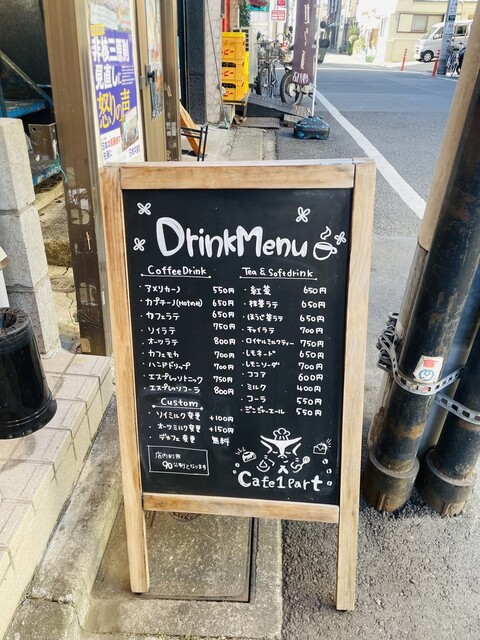 非核三原則
見直しに
怒りの声
Drink Menu
Coffee Drink
・アメリカーノ 550円
・カプチーノ(Hotのみ) 650円
・カフェラテ 650円
・ソイラテ 750円
・オーツラテ 800円
・カフェモカ 700円
・ハンドドリップ 700円
・エスプレッソトニック 750円
・エスプレッソコーラ 800円
Custom
・ソイミルク変更 +100円
・オーツミルク変更 +150円
・デカフェ変更 無料
店内利用
90分制となります
Tea & Softdrink
・紅茶 650円
・抹茶ラテ 650円
・ほうじ茶ラテ 650円
・チャイラテ 700円
・ロイヤルミルクティー 750円
・レモネード 650円
・レモンソーダ 700円
・ココア 600円
・ミルク 400円
・コーラ 550円
・ジンジャーエール 550円
Cafe 1 Part